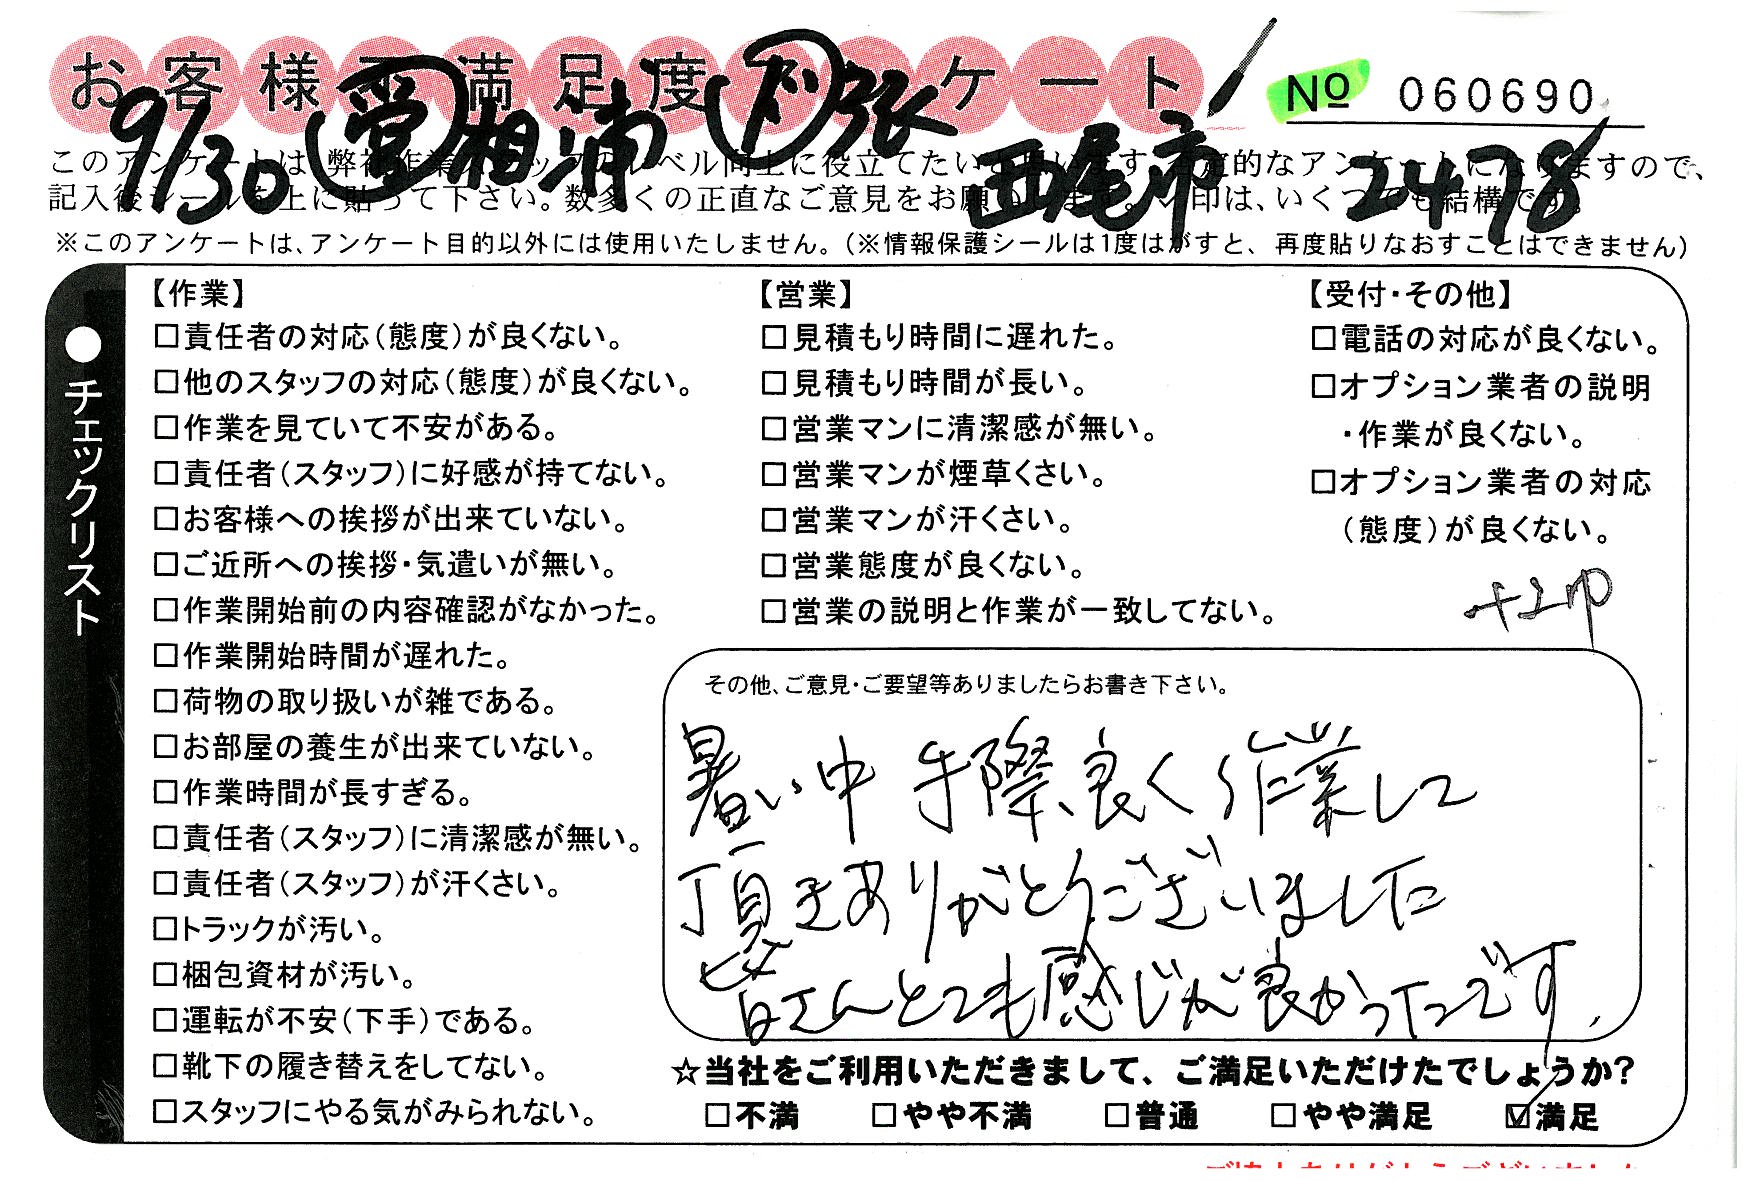 お客様不満足度アンケート
No 060690
9/30 営 相浦 ド 張 西尾市 2478
このアンケートは、弊社作業スタッフのレベル向上に役立てたいと思います。否定的なアンケートになりますので、
記入後シールを上に貼って下さい。数多くの正直なご意見をお願いします。✓印は、いくつでも結構です。
※このアンケートは、アンケート目的以外には使用いたしません。（※情報保護シールは1度はがすと、再度貼りなおすことはできません）
●チェックリスト
【作業】
□責任者の対応（態度）が良くない。
□他のスタッフの対応（態度）が良くない。
□作業を見ていて不安がある。
□責任者（スタッフ）に好感が持てない。
□お客様への挨拶が出来ていない。
□ご近所への挨拶・気遣いが無い。
□作業開始前の内容確認がなかった。
□作業開始時間が遅れた。
□荷物の取り扱いが雑である。
□お部屋の養生が出来ていない。
□作業時間が長すぎる。
□責任者（スタッフ）に清潔感が無い。
□責任者（スタッフ）が汗くさい。
□トラックが汚い。
□梱包資材が汚い。
□運転が不安（下手）である。
□靴下の履き替えをしてない。
□スタッフにやる気がみられない。
【営業】
□見積もり時間に遅れた。
□見積もり時間が長い。
□営業マンに清潔感が無い。
□営業マンが煙草くさい。
□営業マンが汗くさい。
□営業態度が良くない。
□営業の説明と作業が一致してない。
【受付・その他】
□電話の対応が良くない。
□オプション業者の説明
・作業が良くない。
□オプション業者の対応
（態度）が良くない。
+2p
その他、ご意見・ご要望等ありましたらお書き下さい。
暑い中 手際良く作業して
頂きありがとうございました
皆さんとても感じが良かったです。
☆当社をご利用いただきまして、ご満足いただけたでしょうか?
□不満 □やや不満 □普通 □やや満足 ☑満足